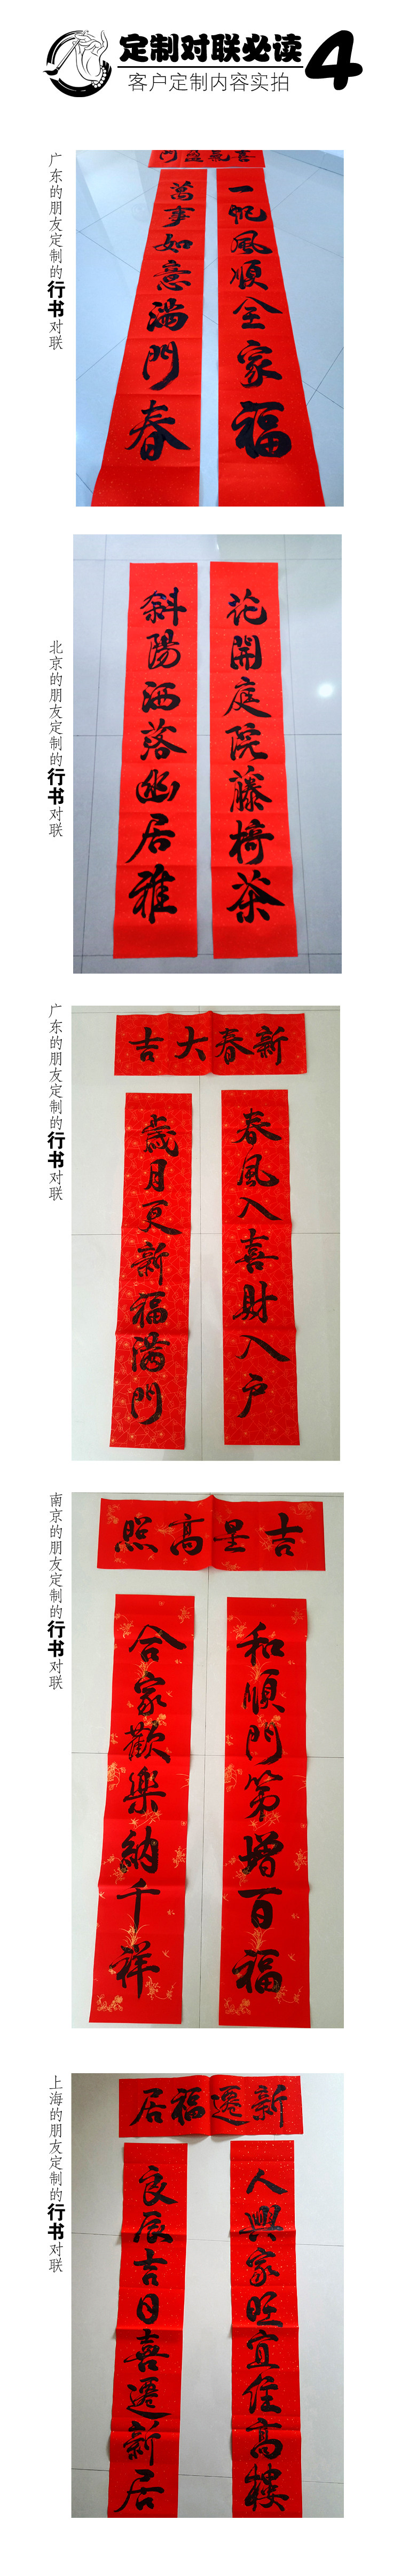 定制对联必读
客户定制内容实拍
4
广东的朋友定制的行书对联
喜氣盈門
一帆風順全家福
萬事如意满門春
北京的朋友定制的行书对联
花開庭院藤椅茶
斜陽洒落幽居雅
广东的朋友定制的行书对联
新春大吉
春風入喜財入户
歲月更新福满門
南京的朋友定制的行书对联
吉星高照
和順門第增百福
合家歡樂納千祥
上海的朋友定制的行书对联
新遷福居
人興家旺宜住高樓
良辰吉日喜遷新居